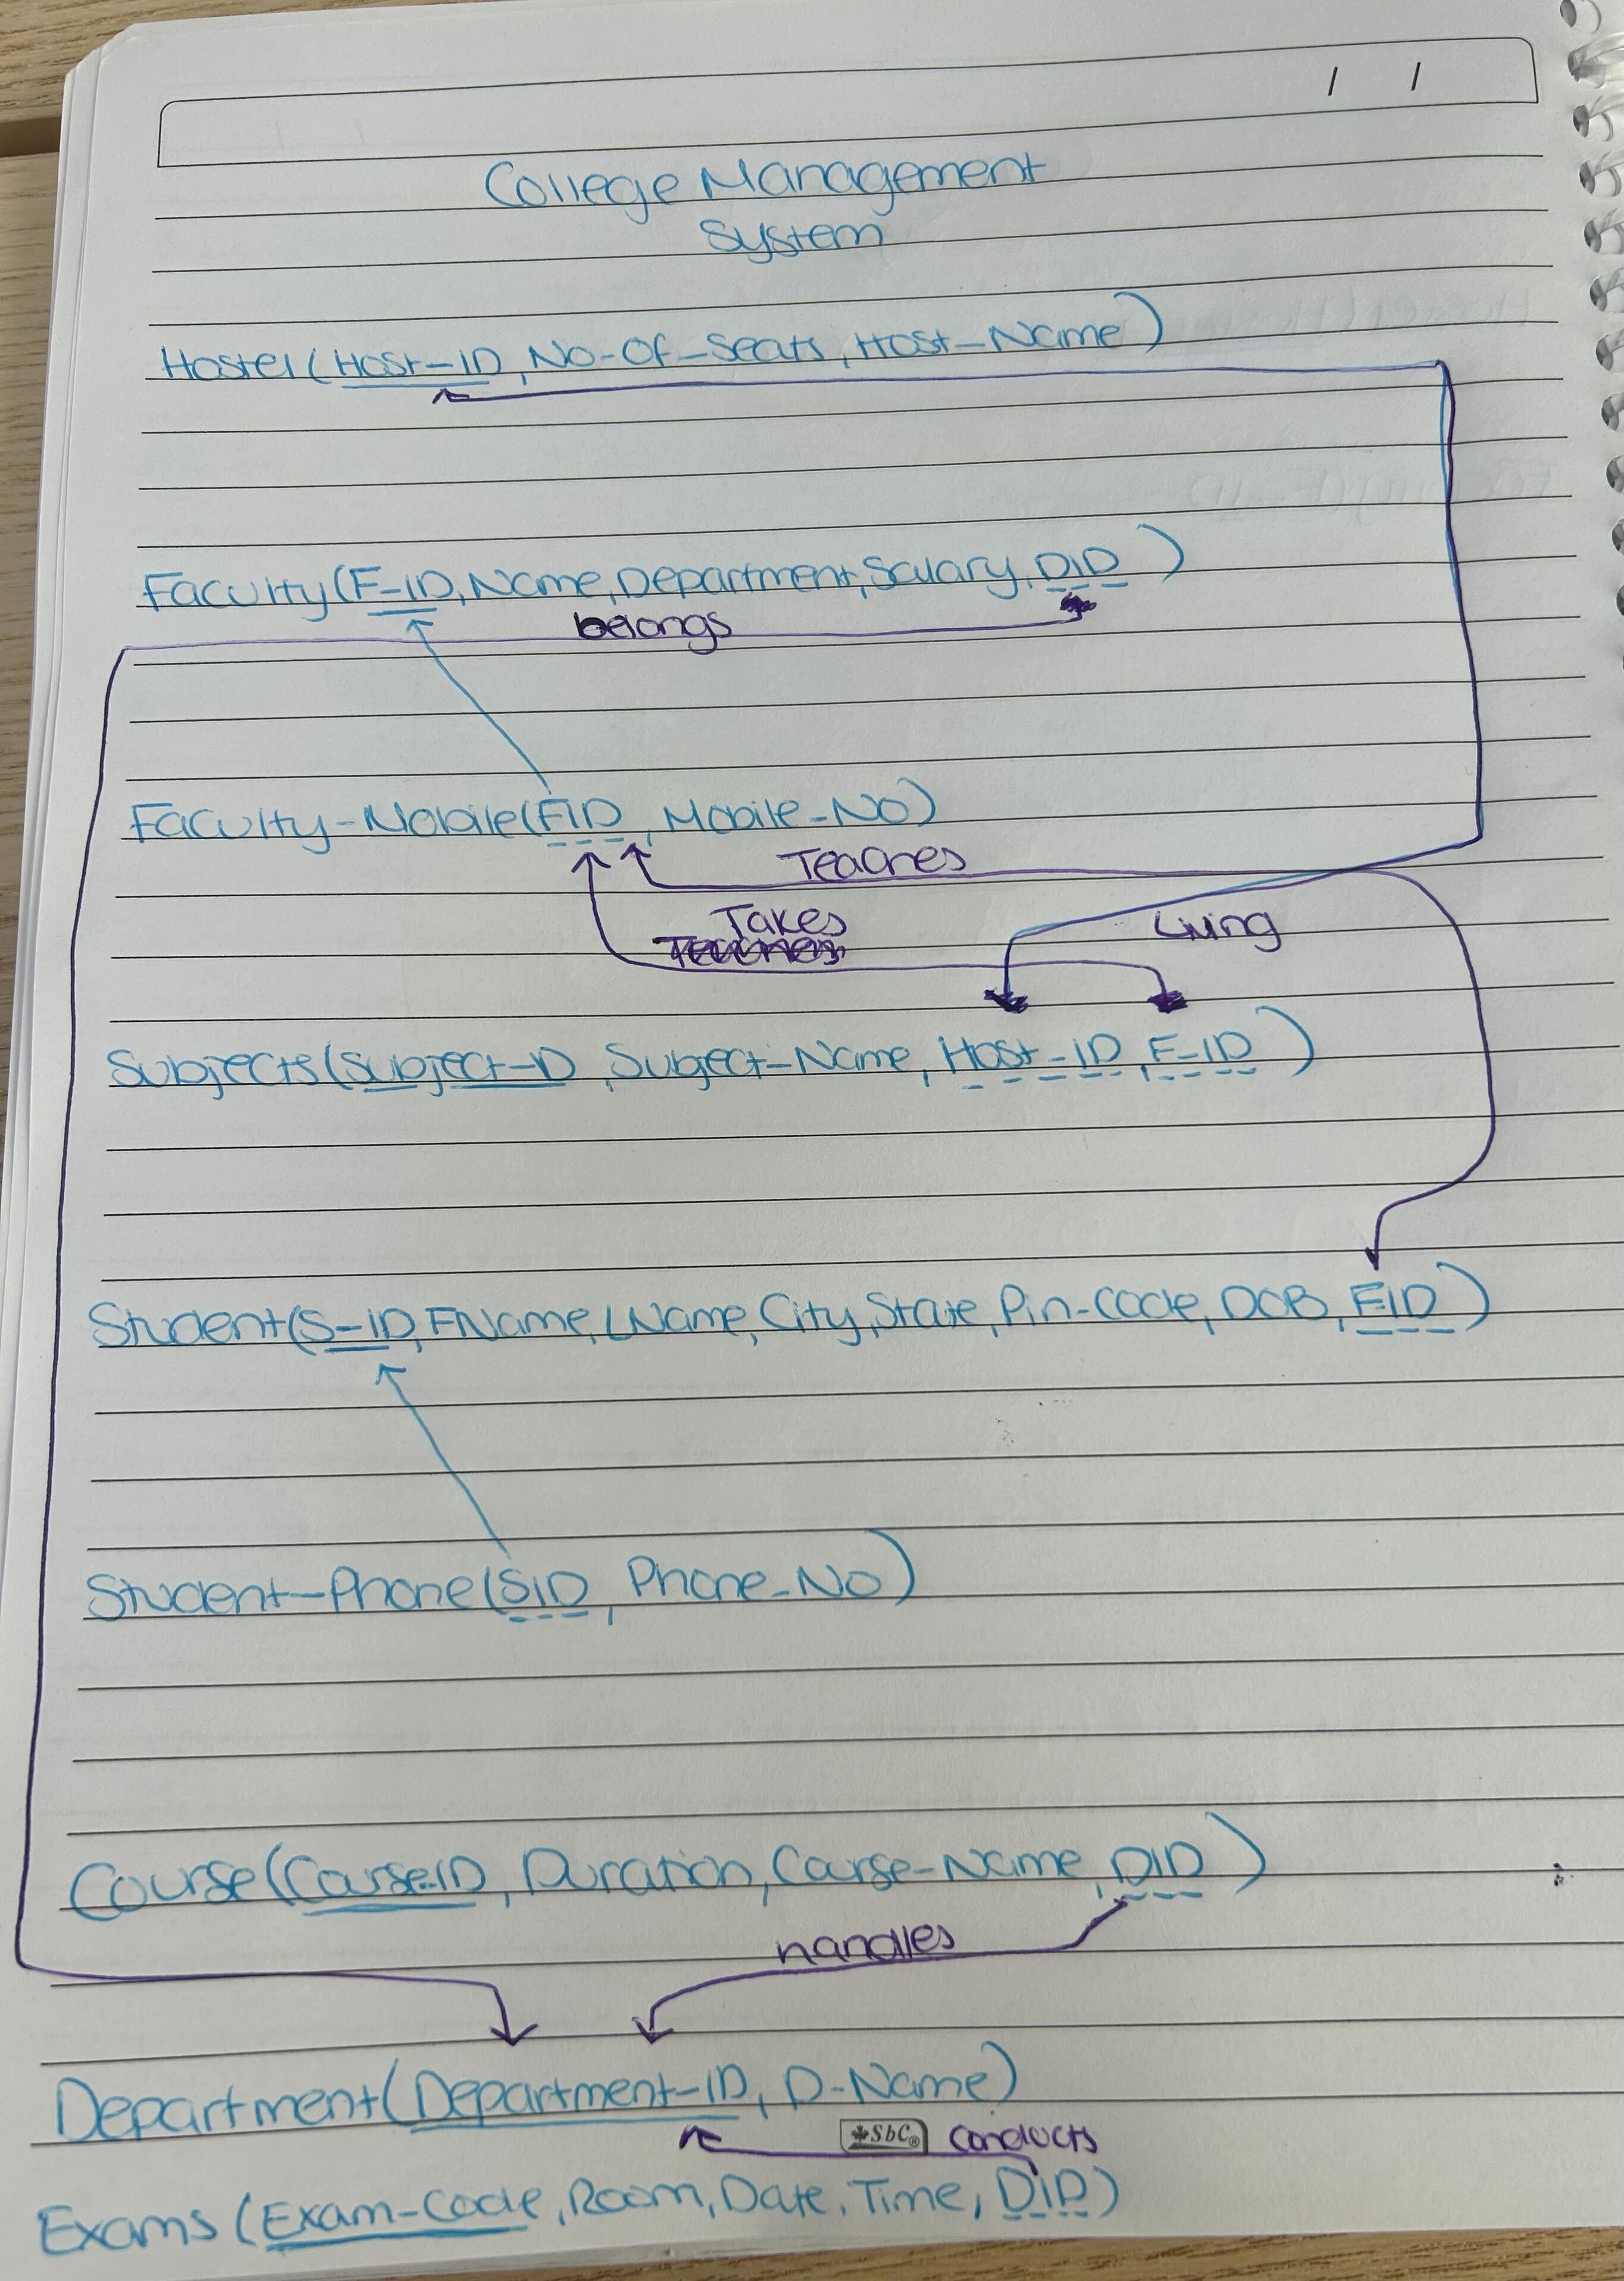 / /
College Management
System
Hostel (Host-ID, No-Of-Seats, Host-Name)
Faculty (F-ID, Name, Department, Salary, DID)
belongs
Faculty-Mobile (FID, Mobile-No)
Teaches
Takes
Living
Subjects (Subject-ID, Subject-Name, Host-ID, F-ID)
Student (S-ID, FName, LName, City, State, Pin-Code, DOB, FID)
Student-Phone (SID, Phone-No)
Course (CourseID, Duration, Course-Name, DID)
handles
Department (Department-ID, D-Name)
SbC® conducts
Exams (Exam-Code, Room, Date, Time, DID)